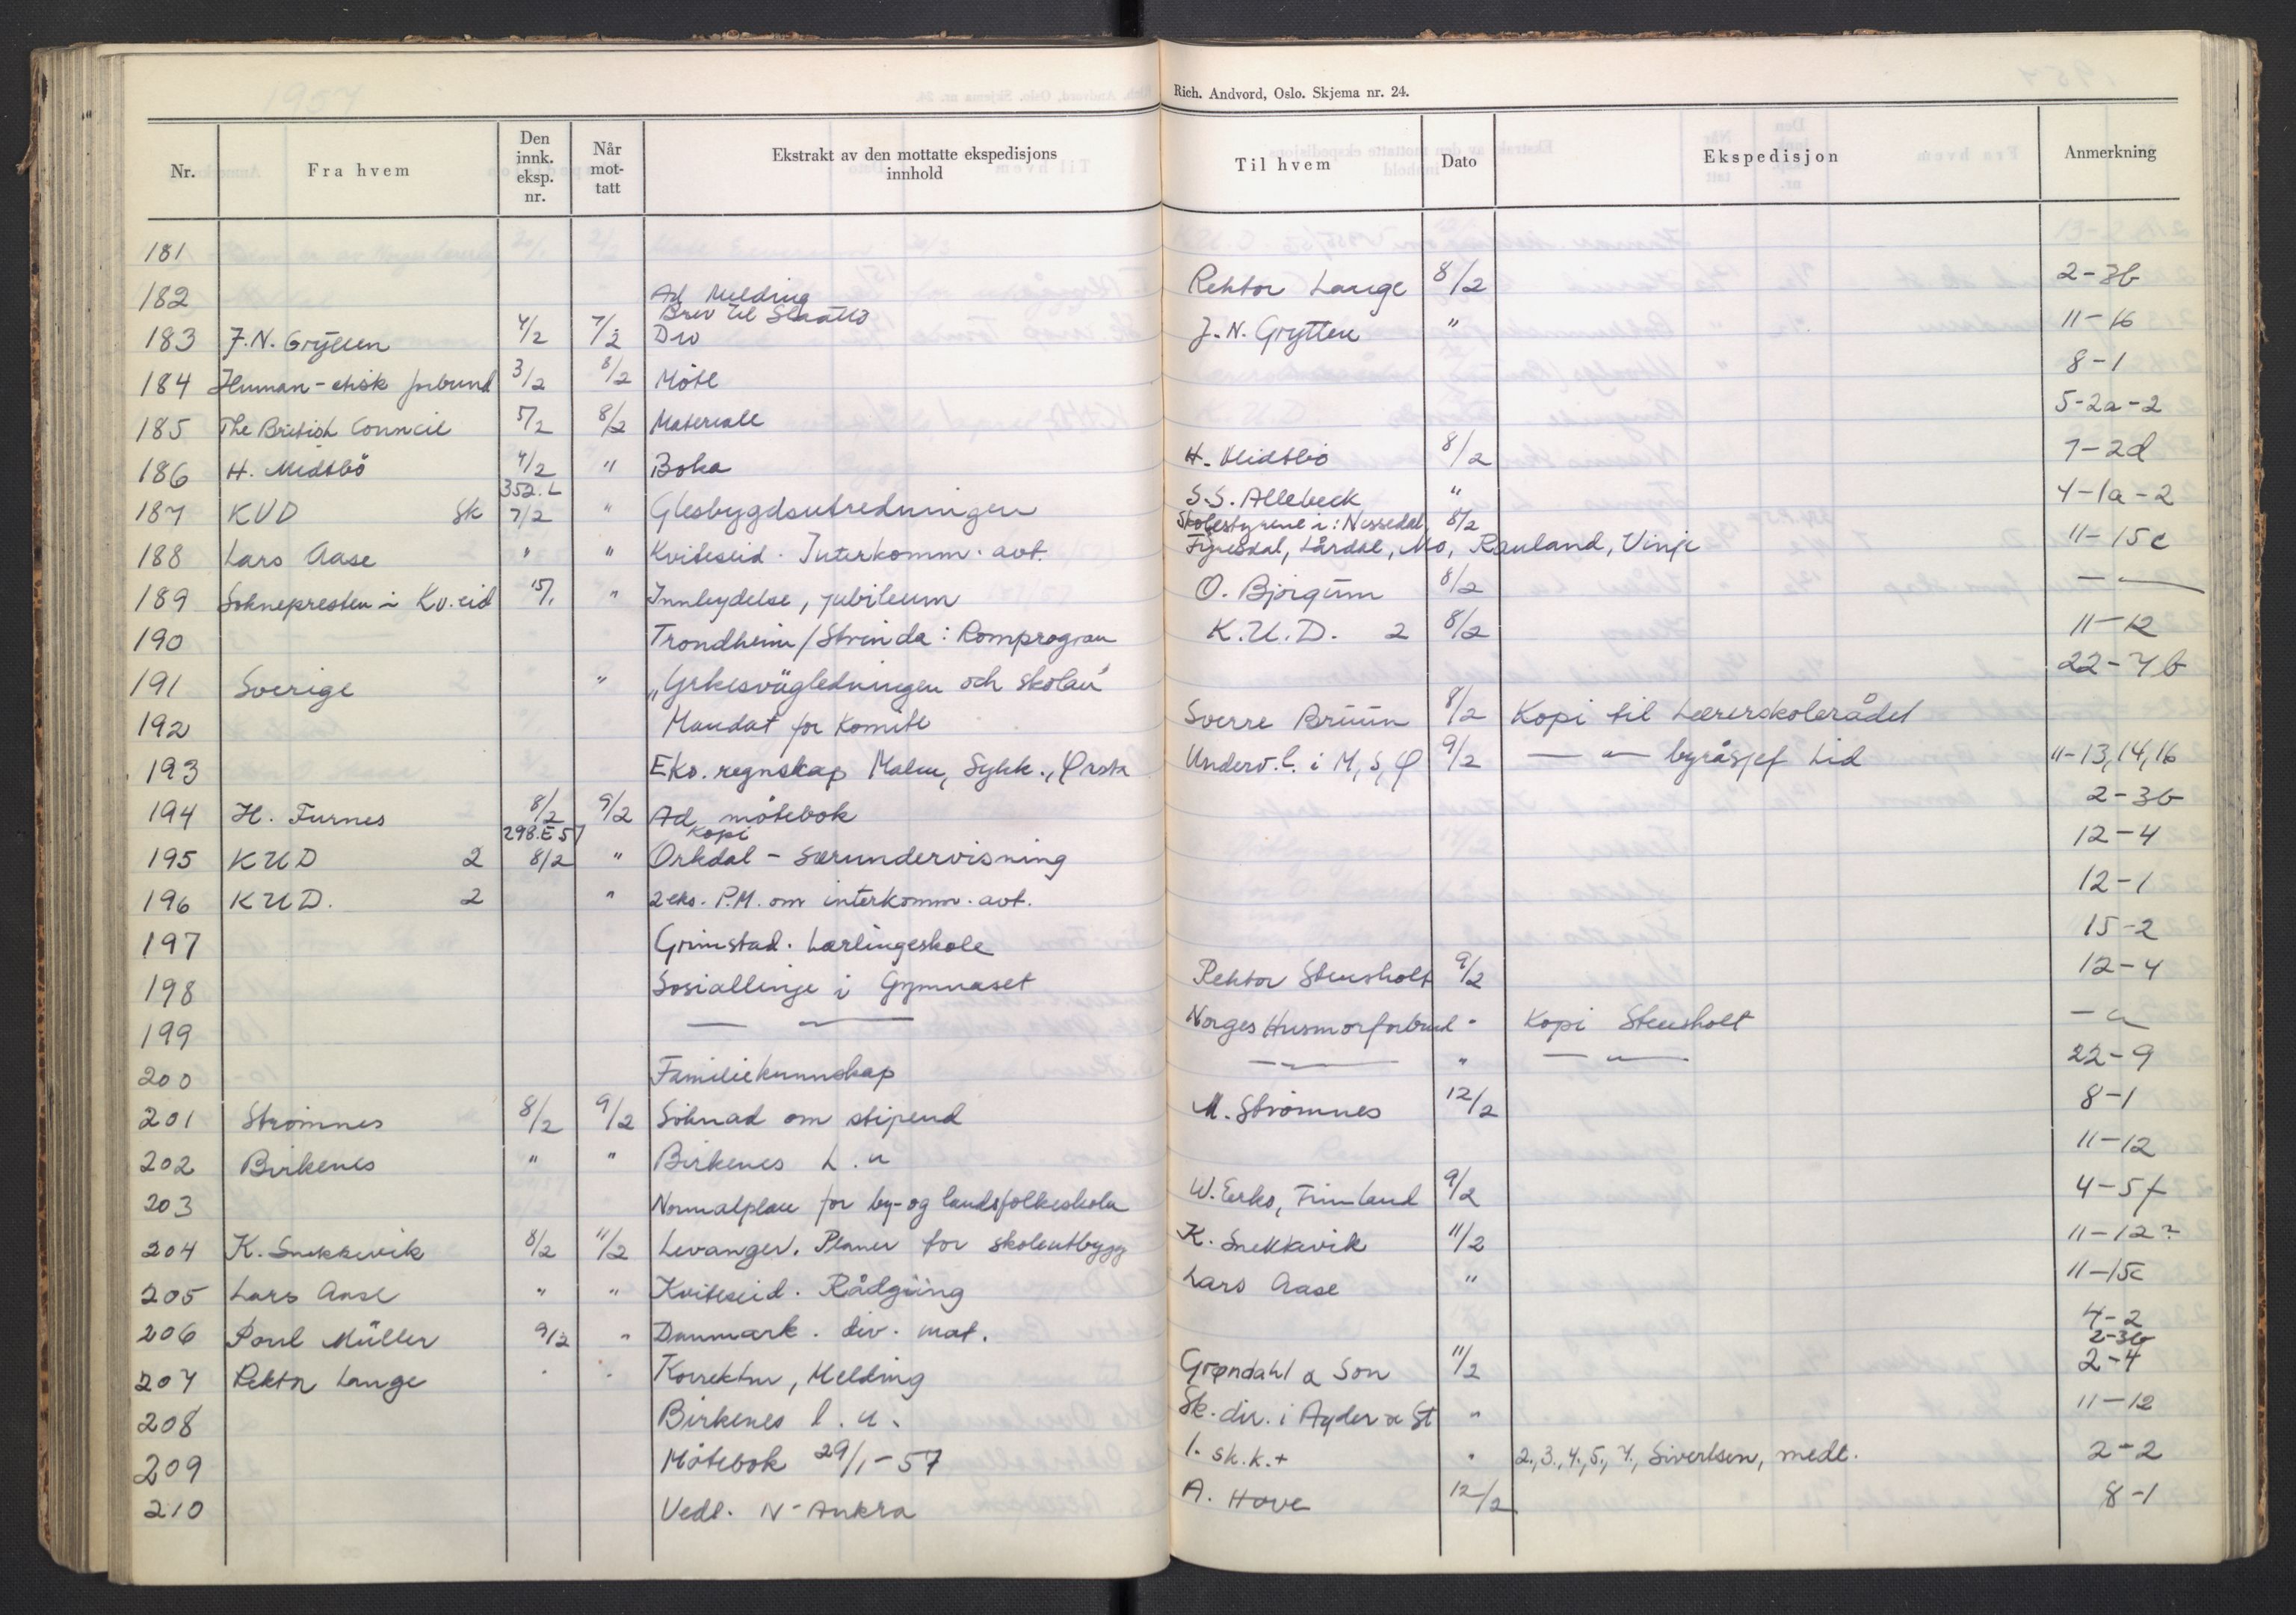 1957
Rich. Andvord, Oslo. Skjema nr. 24.
Nr. Fra hvem Den innk. eksp. nr. Når mot- tatt Ekstrakt av den mottatte ekspedisjons innhold Til hvem Dato Ekspedisjon Anmerkning
181
182 Ad Melding Rektor Lange 8/2 2-3b
183 J.N. Grytten 4/2 7/2 Brev til Slaatto Dro J.N. Grytten " 11-16
184 Human-etisk forbund 3/2 8/2 Möte 8-1
185 The British Council 5/2 8/2 Materiale 5-2a-2
186 H. Midtbö 4/2 " Boka H. Midtbö 8/2 7-2d
187 KUD Sk 352.L 7/2 " Glesbygdsutredningen S.S. Allebeck " 4-1a-2
188 Lars Aase " " Kviteseid. Interkomm. avt. Skolestyrene i: Nissedal, 8/2 Fyresdal, Lårdal, Mo, Rauland, Vinje 11-15c
189 Soknepresten i Kv.eid 15/1 " Innbydelse, jubileum O. Bjørgum 8/2 — " —
190 Trondheim/Strinda: Romprogram K.U.D. 2 8/2 11-12
191 Sverige " "Yrkesvägledningen och skolan" 22-7b
192 Mandat for Komite Sverre Bruun 8/2 Kopi til Lærerskolerådet
193 Eks. regnskap Malm, Sykk., Ørsta Underv.l. i M, S, Ø 9/2 — " — byråsjef Lid 11-13,14,16
194 H. Furnes 8/2 9/2 Ad mötebok 2-3b
195 KUD 2 298.E57 8/2 " Kopi Orkdal - særundervisning 12-4
196 KUD. 2 " 2 eks. P.M. om interkomm. avt. 12-1
197 Grimstad. Lærlingeskole 15-2
198 Sosiallinje i Gymnaset Rektor Stensholt 9/2 12-4
199 — " — Norges Husmorforbund " Kopi Stensholt — " —
200 Familiekunnskap — " — " — " — 22-9
201 Strömnes 8/2 9/2 Söknad om stipend M. Strömnes 12/2 8-1
202 Birkenes " " Birkenes L.u 11-12
203 Normalplan for by- og landsfolkeskola 9/2 4-5f
204 K. Snekkevik 8/2 11/2 Levanger. Planer for skoleutbygg K. Snekkvik 11/2 11-12?
205 Lars Aase " " Kviteseid. Rådgiing Lars Aase " 11-15c
206 Poul Müller 9/2 " Danmark. div. mat. 4-2
207 Rektor Lange " " Korrektur, Melding Grøndahl & Son 11/2 2-3b 2-4
208 Birkenes l.u. Sk.dir. i Agder & St " 11-12
209 Mötebok 29/1-57 1. sk.k.+ " 2., 3., 4., 5., 7., Sivertsen, medl. 2-2
210 Vedl. N-Ankra A. Hove 12/2 8-1